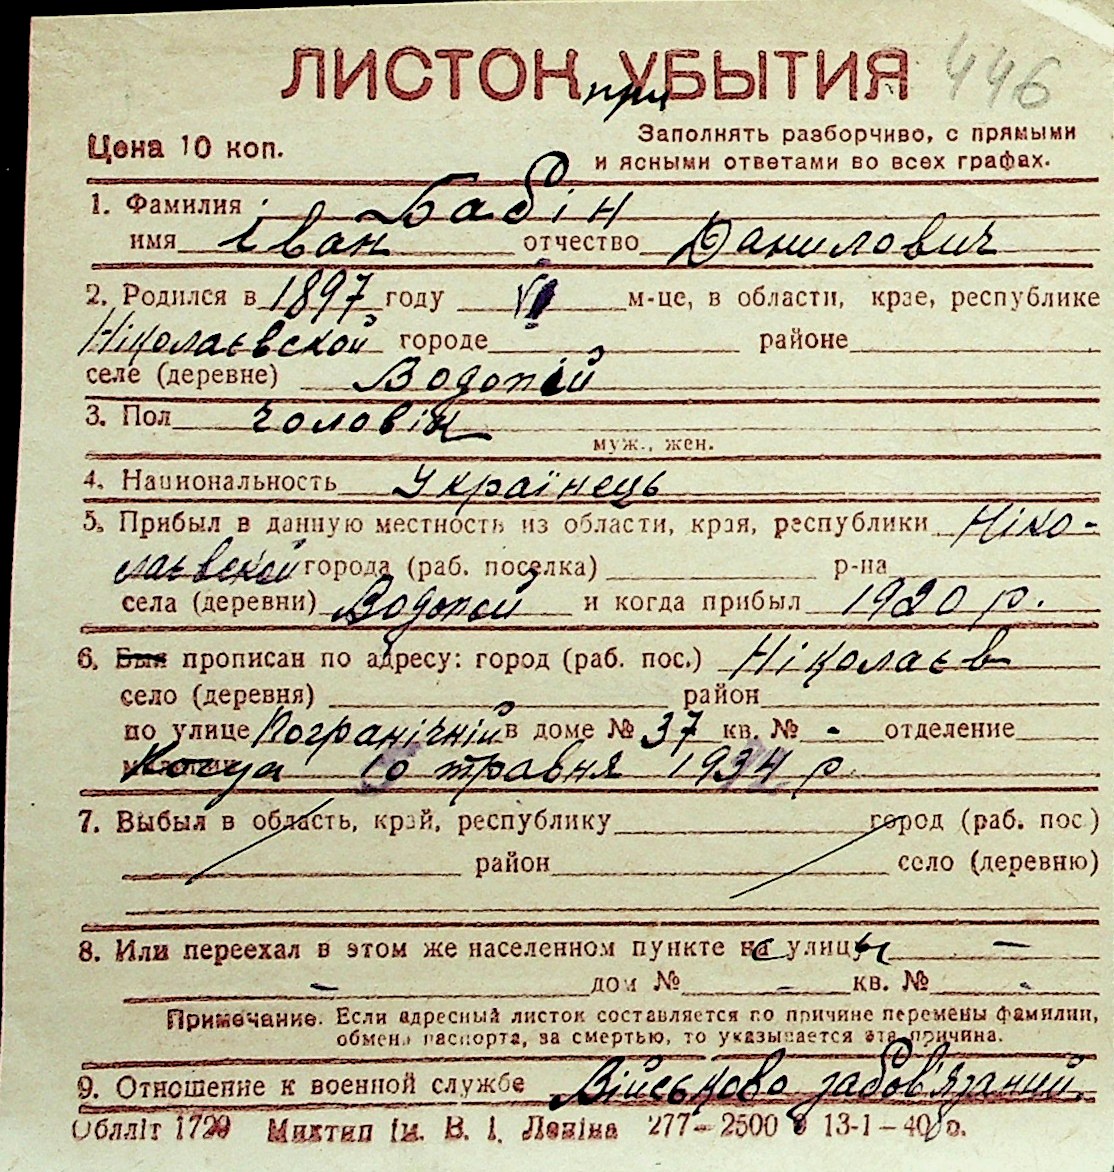 ЛИСТОК УБЫТИЯ 446
при
Цена 10 коп. Заполнять разборчиво, с прямыми
и ясными ответами во всех графах.
1. Фамилия Бабін
имя Іван отчество Данилович
2. Родился в 1897 году VI м-це, в области, крае, республике
Ніколаєвской городе районе
селе (деревне) Водопій
3. Пол чоловік
муж., жен.
4. Национальность Українець
5. Прибыл в данную местность из области, края, республики Ніко-
лаєвской города (раб. поселка) р-на
села (деревни) Водопой и когда прибыл 1920 р.
6. Был прописан по адресу: город (раб. пос.) Ніколаєв
село (деревня) район
по улице Пограничній в доме № 37 кв. № - отделение
милиции Когда 10 травня 1934 р.
7. Выбыл в область, край, республику город (раб. пос.)
район село (деревню)
8. Или переехал в этом же населенном пункте с улицы —
- дом № - кв. № -
Примечание. Если адресный листок составляется по причине перемены фамилии,
обмена паспорта, за смертью, то указывается эта причина.
9. Отношение к военной службе Військово забов'язаний.
Обллiт 1729 Миктип ім. В. І. Леніна 277—2500 13-1—40 р.